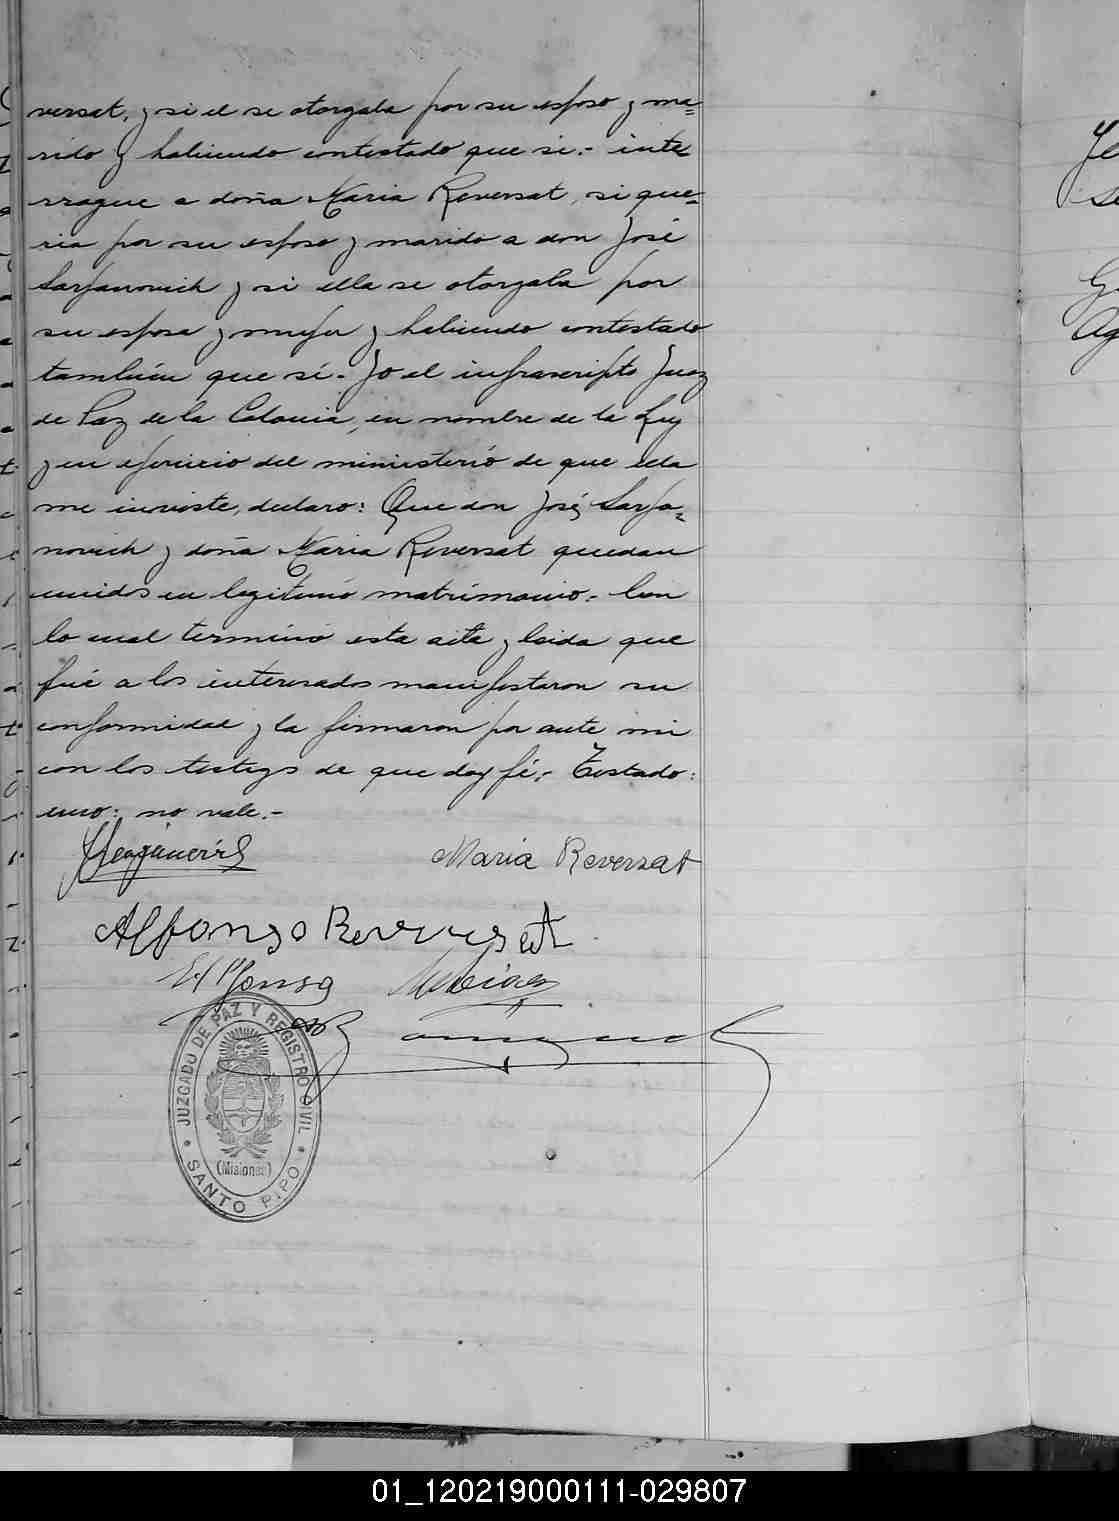 versat, y si el se otorgaba por su esposo y ma=
rido y habiendo contestado que si.- inte
rrogue a doña Maria Reversat, si que=
ria por su esposo y marido a don José
Sarpanovich y si ella se otorgaba por
su esposa y mujer y habiendo contestado
también que sí.- Yo el infrascripto Juez
de Paz de la Colonia, en nombre de la Ley
y en ejercicio del ministerio de que ella
me inviste, declaro: Que don José Sarpa=
novich y doña Maria Reversat quedan
unidos en legitimo matrimonio.- Con
lo cual terminó esta acta y leida que
fué a los interesados manifestaron su
conformidad y la firmaron por ante mi
con los testigos de que doy fé.- Testado:
no vale.-
Maria Reversat
Alfonso Reversat
JUZGADO DE PAZ Y REGISTRO CIVIL
(Misiones)
SANTO PIPO
01_120219000111-029807